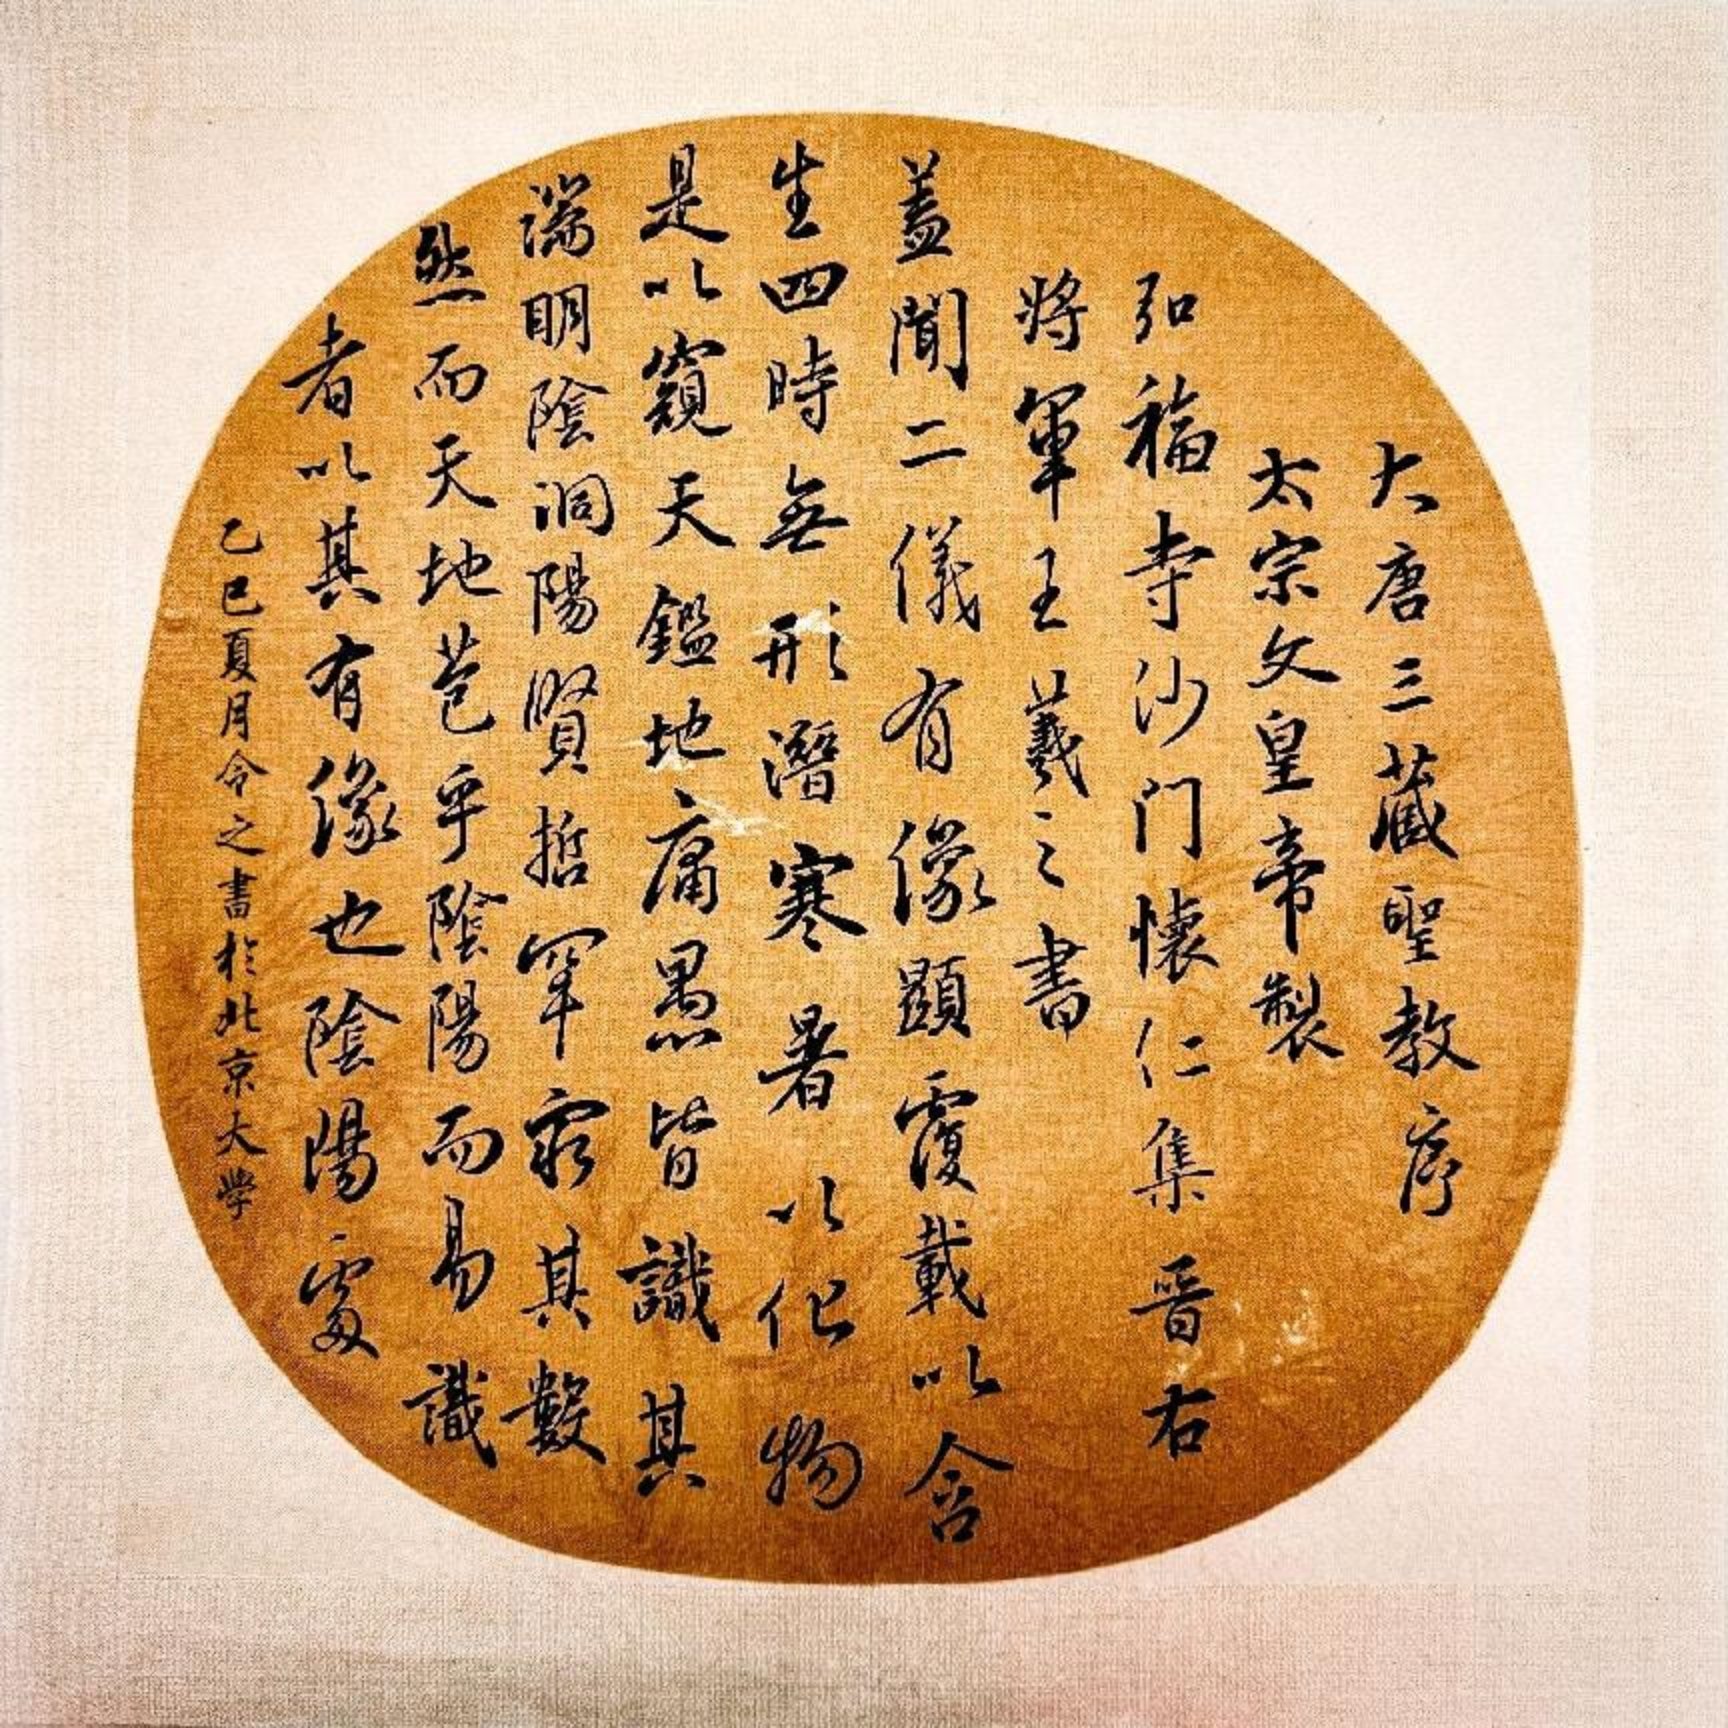 大唐三藏聖教序
太宗文皇帝製
弘福寺沙门懷仁集晋右
將軍王羲之書
蓋聞二儀有像顯覆載以含
生四時無形潛寒暑以化物
是以窺天鑑地庸愚皆識其
端明陰洞陽賢哲罕窮其數
然而天地苞乎陰陽而易識
者以其有像也陰陽處
乙巳夏月令之書於北京大學